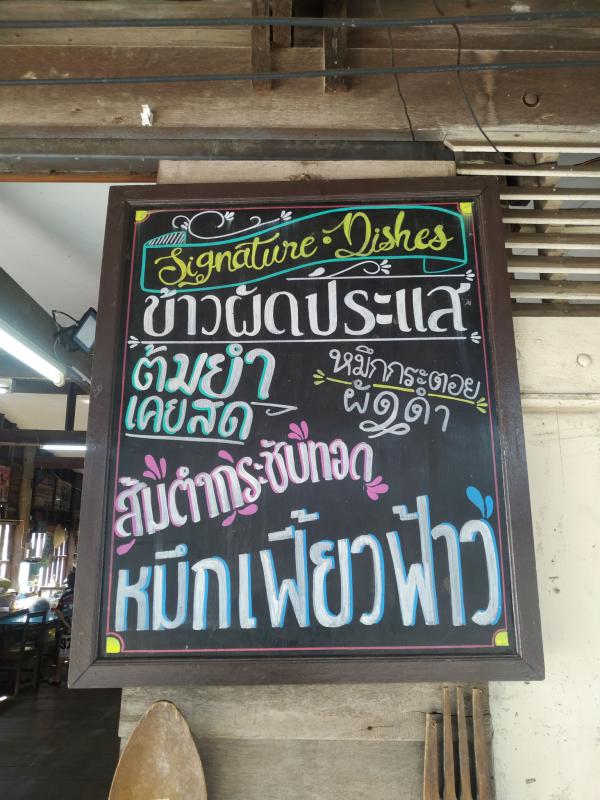 Signature • Dishes
ข้าวผัดประแส
ต้มยำ
เคยสด
หมึกกระตอย
ผัดดำ
ส้มตำกระชับทอด
หมึกเฟี้ยวฟ้าว